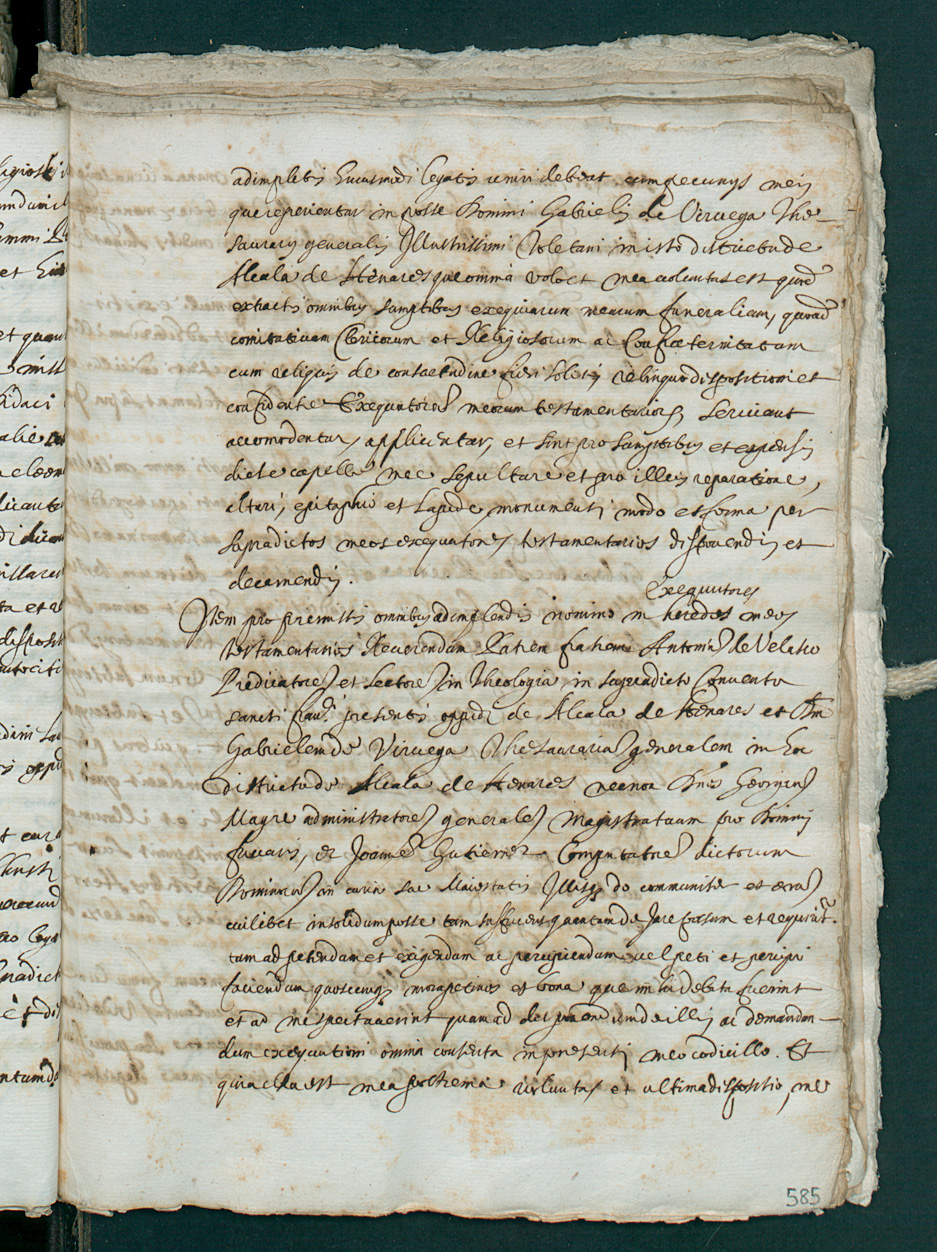 adimpletis huiusmodi legatis uniri debeat cum pecunijs meis
que reperientur in posse Domini Gabrielis de Viruega The-
saurarij generalis Illustrissimi Toletani in isto districtu de
Alcala de Henares que omnia volo et mea voluntas est quod
extractis omnibus sumptibus exequiarum mearum funeralium, quoad
comitativam Clericorum et Religiosorum ac Confraternitatum
cum reliquis de consuetudine fieri solitis relinquo dispositioni et
confidentie Exequutorum meorum testamentariorum serviant
accomodentur, applicentur, et sint pro sumptibus et expensis
dicte capelle mee sepulture et pro illius reparatione,
altari, epitaphio et lapide, monumenti modo et forma per
supradictos meos exequutores testamentarios disponendis et
decernendis.
Exequutores
Item pro premissis omnibus adimplendis nomino in heredes meos
testamentarios Reverendum Patrem fratrem Antonium de Velasco
Predicatorem et Lectorem in Theologia in supradicto Conventu
sancti Franci presentis oppidi de Alcala de Henares et Dnm
Gabrielem de Viruega Thesaurarium generalem in hoc
districtu de Alcala de Henares necnon Dnm Georgium
Mayre administratorem generalem Magistratuum pro Dominis
fucaris, et Joannem Gutierrez Computatorem dictorum
Dominorum in curia sue Maiestatis Illisque do communiter et eorum
cuilibet in solidum posse tam sufficiens quantum de Jure possum et requiritur.
tam ad petendum et exigendum ac percipiendum vel peti et percipi
faciendum quoscunque morapetinos et bona que mihi debita fuerint
et ad me spectaverint quam ad disponendum de illis ac demandan-
dum exequutioni omnia contenta in presenti meo codicillo. Et
quia hec est mea postrema voluntas et ultima dispositio, me
585